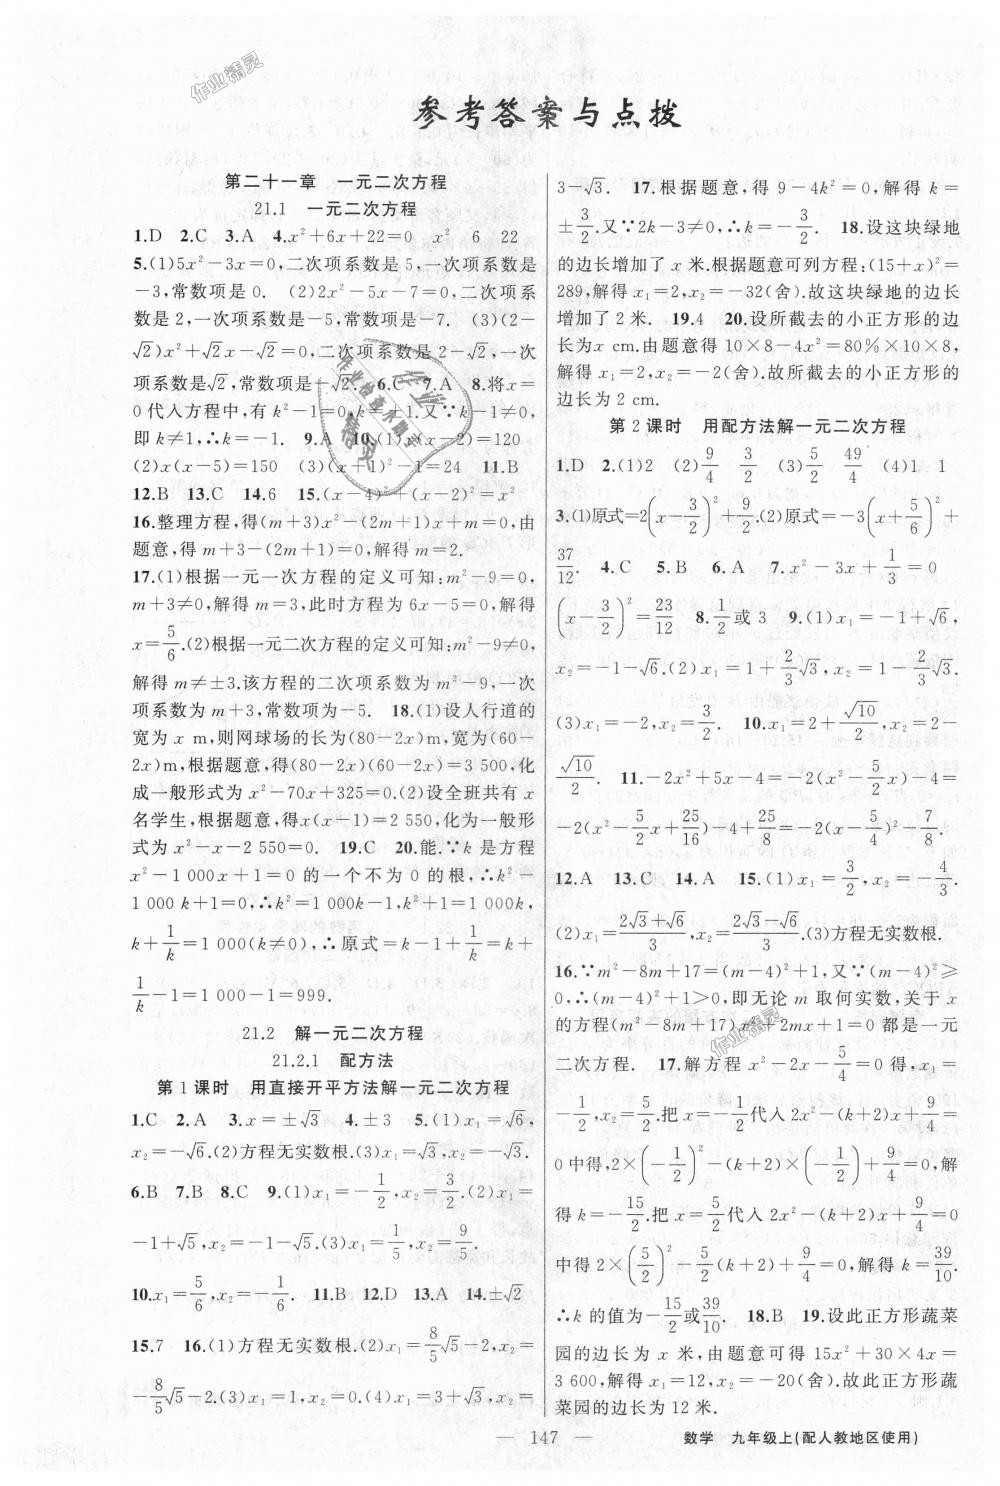 参考答案与点拨
第二十一章 一元二次方程
21.1 一元二次方程
1.D 2.C 3.A 4.x²+6x+22=0 x² 6 22
5.(1)5x²-3x=0,二次项系数是5,一次项系数是
-3,常数项是0. (2)2x²-5x-7=0,二次项系
数是2,一次项系数是-5,常数项是-7. (3)(2-
√2)x²+√2x-√2=0,二次项系数是2-√2,一次
项系数是√2,常数项是-√2. 6.C 7.A 8.将x=
0代入方程中,有k²-1=0,k=±1.又∵k-1≠0,
即k≠1,∴k=-1. 9.A 10.(1)x(x-2)=120
(2)x(x-5)=150 (3)(x+1)²-1=24 11.B
12.B 13.C 14.6 15.(x-4)²+(x-2)²=x²
16.整理方程,得(m+3)x²-(2m+1)x+m=0,由
题意,得m+3-(2m+1)=0,解得m=2.
17.(1)根据一元一次方程的定义可知:m²-9=0,
m+3≠0,解得m=3,此时方程为6x-5=0,解得
x=5/6.(2)根据一元二次方程的定义可知:m²-9≠0,
解得m≠±3.该方程的二次项系数为m²-9,一次
项系数为m+3,常数项为-5. 18.(1)设人行道的
宽为x m,则网球场的长为(80-2x)m,宽为(60-
2x)m,根据题意,得(80-2x)(60-2x)=3 500,化
成一般形式为x²-70x+325=0.(2)设全班共有x
名学生,根据题意,得x(x-1)=2 550,化为一般形
式为x²-x-2 550=0. 19.C 20.能.∵k是方程
x²-1 000x+1=0的一个不为0的根,∴k²-
1 000k+1=0,∴k²=1 000k-1,k²+1=1 000k,
k+1/k=1 000(k≠0),∴原式=k-1+1/k=k+
1/k-1=1 000-1=999.
21.2 解一元二次方程
21.2.1 配方法
第1课时 用直接开平方法解一元二次方程
1.C 2.A 3.x=±√3 4.±3 5.(1)x₁=√6,
x₂=-√6.(2)方程无实数根.(3)x₁=√3,x₂=-√3.
6.B 7.B 8.C 9.(1)x₁=-1/2,x₂=3/2.(2)x₁=
-1+√5,x₂=-1-√5.(3)x₁=1/5,x₂=9/5.
10.x₁=5/6,x₂=-1/6. 11.B 12.D 13.A 14.±√2
15.7 16.(1)方程无实数根.(2)x₁=8/5√5-2,x₂=
-8/5√5-2.(3)x₁=1,x₂=0.(4)x₁=3+√3,x₂=
3-√3. 17.根据题意,得9-4k²=0,解得k=
±3/2.又∵2k-3≠0,∴k=-3/2. 18.设这块绿地
的边长增加了x米.根据题意可列方程:(15+x)²=
289,解得x₁=2,x₂=-32(舍).故这块绿地的边长
增加了2米. 19.4 20.设所截去的小正方形的边
长为x cm.由题意得10×8-4x²=80%×10×8,
解得x₁=2,x₂=-2(舍).故所截去的小正方形的
边长为2 cm.
第2课时 用配方法解一元二次方程
1.D 2.(1)2 (2)9/4 3/2 (3)5/2 49/4 (4)1 1
3.(1)原式=2(x-3/2)²+9/2.(2)原式=-3(x+5/6)²+
37/12. 4.C 5.B 6.A 7.x²-3x+1/3=0
(x-3/2)²=23/12 8.1/2或3 9.(1)x₁=-1+√6,
x₂=-1-√6.(2)x₁=1+2/3√3,x₂=1-2/3√3.
(3)x₁=-2,x₂=3/2. 10.x₁=2+√10/2,x₂=2-
√10/2. 11.-2x²+5x-4=-2(x²-5/2x)-4=
-2(x²-5/2x+25/16)-4+25/8=-2(x-5/4)²-7/8.
12.A 13.C 14.A 15.(1)x₁=3/2,x₂=-4/3.
(2)x₁=(2√3+√6)/3,x₂=(2√3-√6)/3.(3)方程无实数根.
16.∵m²-8m+17=(m-4)²+1,又∵(m-4)²≥
0,∴(m-4)²+1>0,即无论m取何实数,关于x
的方程(m²-8m+17)x²+2mx+1=0都是一元
二次方程. 17.解方程x²-2x-5/4=0得,x₁=
-1/2,x₂=5/2.把x=-1/2代入2x²-(k+2)x+9/4=
0中得,2×(-1/2)²-(k+2)×(-1/2)+9/4=0,解
得k=-15/2.把x=5/2代入2x²-(k+2)x+9/4=0
中得2×(5/2)²-5/2(k+2)+9/4=0,解得k=39/10.
∴k的值为-15/2或39/10. 18.B 19.设此正方形蔬菜
园的边长为x米,由题意可得15x²+30×4x=
3 600,解得x₁=12,x₂=-20(舍).故此正方形蔬
菜园的边长为12米.
— 147 — 数学 九年级上(配人教地区使用)
作业精灵
作业检查小助手
作业精灵
作业精灵